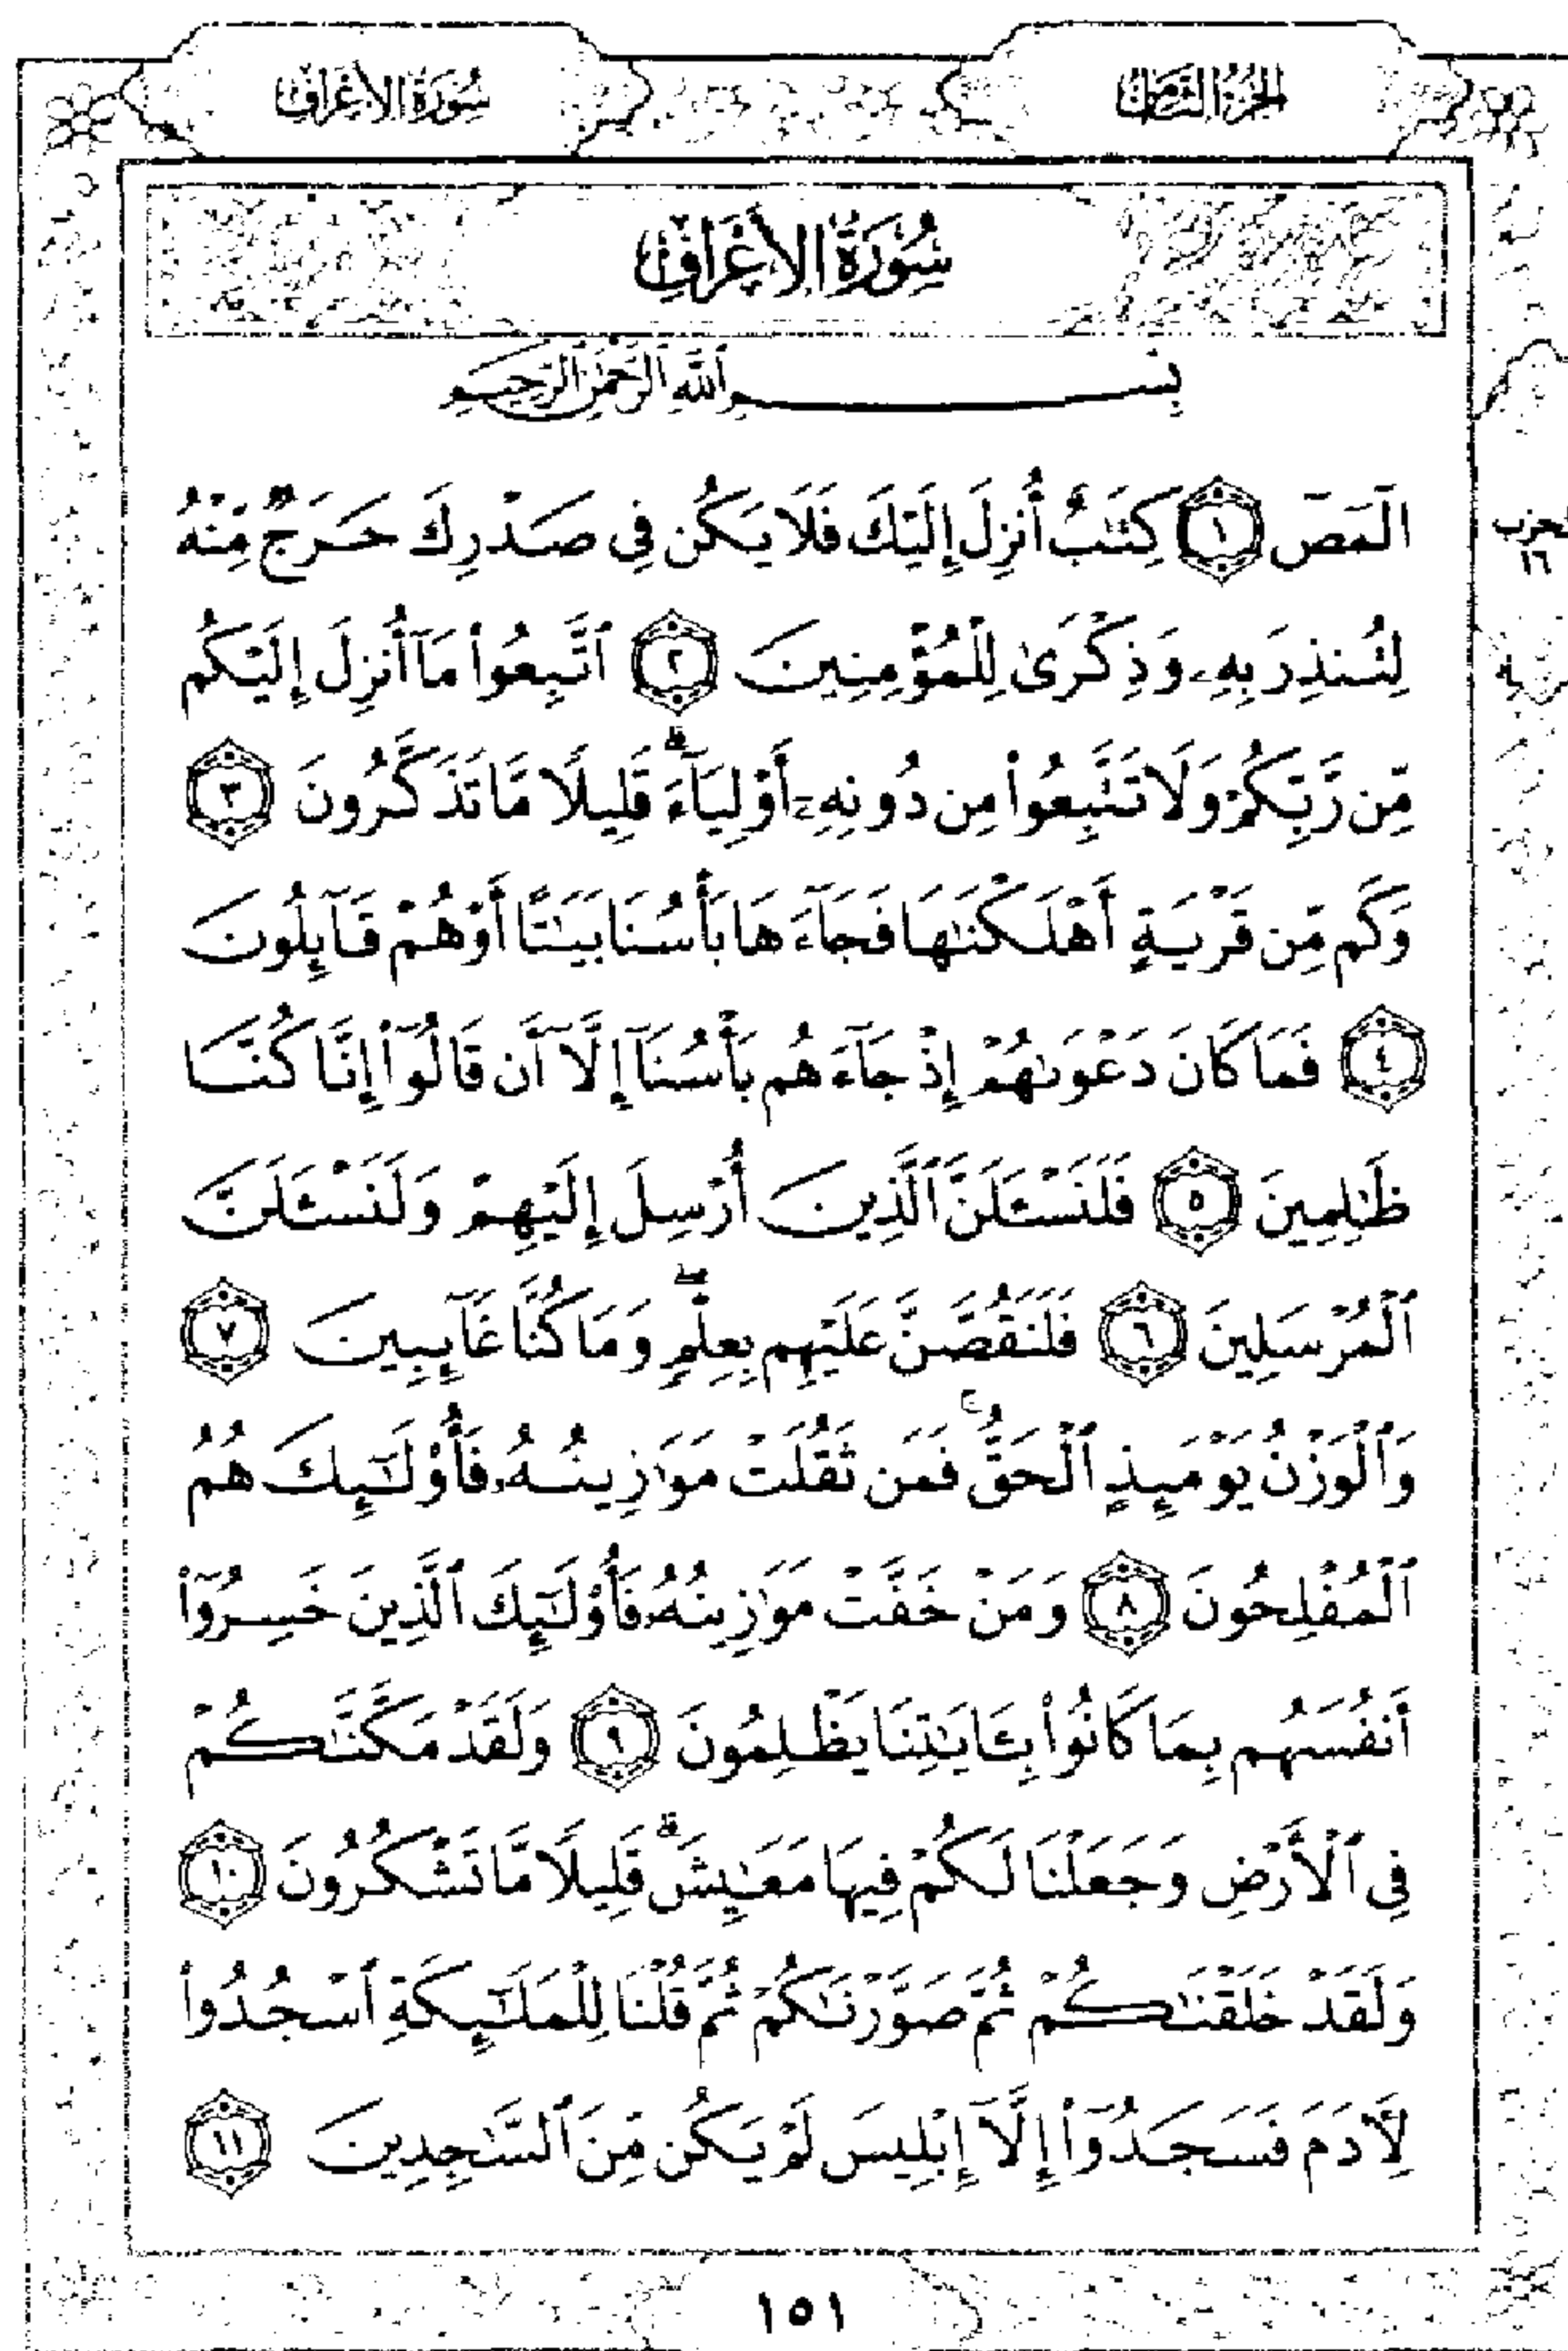 الجزء الثامن
سورة الأعراف
سُورَةُ الأَعْرَافِ
بِسْمِ ٱللَّهِ ٱلرَّحْمَٰنِ ٱلرَّحِيمِ
الٓمٓصٓ ١ كِتَٰبٌ أُنزِلَ إِلَيْكَ فَلَا يَكُن فِى صَدْرِكَ حَرَجٌ مِّنْهُ
لِتُنذِرَ بِهِۦ وَذِكْرَىٰ لِلْمُؤْمِنِينَ ٢ ٱتَّبِعُوا۟ مَآ أُنزِلَ إِلَيْكُم
مِّن رَّبِّكُمْ وَلَا تَتَّبِعُوا۟ مِن دُونِهِۦٓ أَوْلِيَآءَ ۗ قَلِيلًا مَّا تَذَكَّرُونَ ٣
وَكَم مِّن قَرْيَةٍ أَهْلَكْنَٰهَا فَجَآءَهَا بَأْسُنَا بَيَٰتًا أَوْ هُمْ قَآئِلُونَ
٤ فَمَا كَانَ دَعْوَىٰهُمْ إِذْ جَآءَهُم بَأْسُنَآ إِلَّآ أَن قَالُوٓا۟ إِنَّا كُنَّا
ظَٰلِمِينَ ٥ فَلَنَسْـَٔلَنَّ ٱلَّذِينَ أُرْسِلَ إِلَيْهِمْ وَلَنَسْـَٔلَنَّ
ٱلْمُرْسَلِينَ ٦ فَلَنَقُصَّنَّ عَلَيْهِم بِعِلْمٍ ۖ وَمَا كُنَّا غَآئِبِينَ ٧
وَٱلْوَزْنُ يَوْمَئِذٍ ٱلْحَقُّ ۚ فَمَن ثَقُلَتْ مَوَٰزِينُهُۥ فَأُو۟لَٰٓئِكَ هُمُ
ٱلْمُفْلِحُونَ ٨ وَمَنْ خَفَّتْ مَوَٰزِينُهُۥ فَأُو۟لَٰٓئِكَ ٱلَّذِينَ خَسِرُوٓا۟
أَنفُسَهُم بِمَا كَانُوا۟ بِـَٔايَٰتِنَا يَظْلِمُونَ ٩ وَلَقَدْ مَكَّنَّٰكُمْ
فِى ٱلْأَرْضِ وَجَعَلْنَا لَكُمْ فِيهَا مَعَٰيِشَ ۗ قَلِيلًا مَّا تَشْكُرُونَ ١٠
وَلَقَدْ خَلَقْنَٰكُمْ ثُمَّ صَوَّرْنَٰكُمْ ثُمَّ قُلْنَا لِلْمَلَٰٓئِكَةِ ٱسْجُدُوا۟
لِـَٔادَمَ فَسَجَدُوٓا۟ إِلَّآ إِبْلِيسَ لَمْ يَكُن مِّنَ ٱلسَّٰجِدِينَ ١١
الحزب
١٦
١٥١